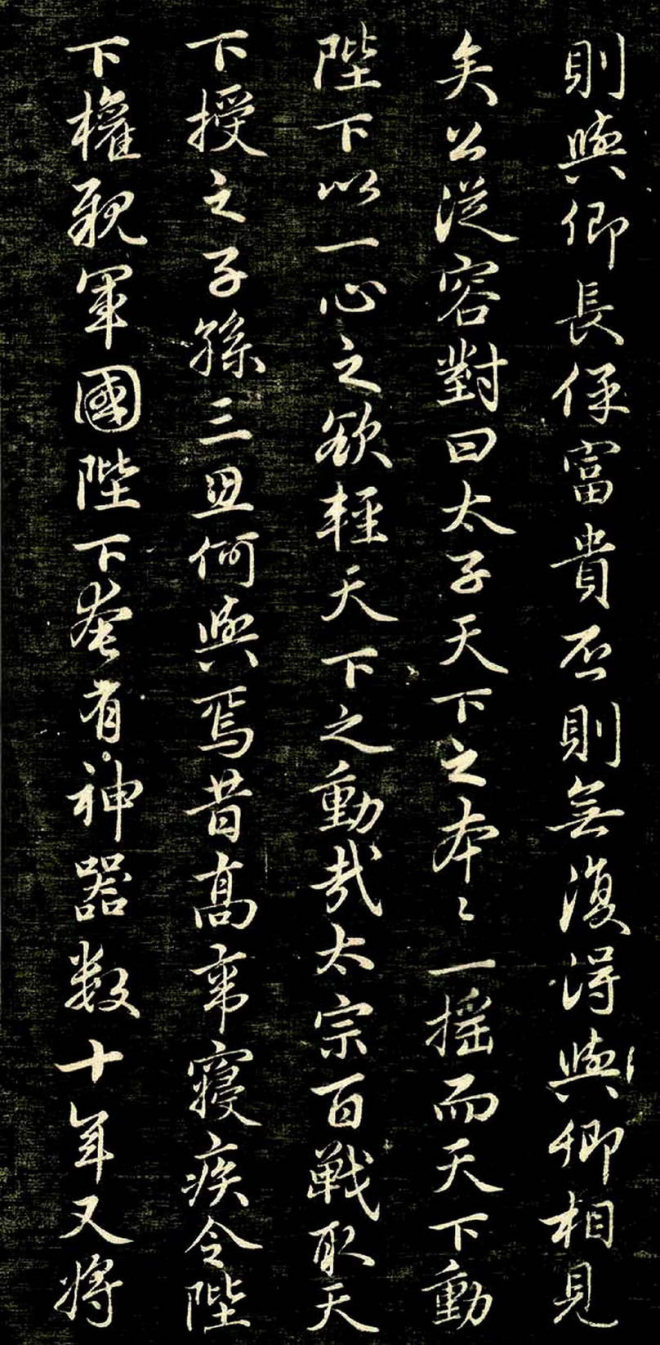 則與卿長保富貴否則無復得與卿相見
矣公從容對曰太子天下之本〻一摇而天下動
陛下以一心之欲輕天下之動哉太宗百戰取天
下授之子孫三思何與焉昔高帝寝疾令陛
下權親軍國陛下奄有神器数十年又将